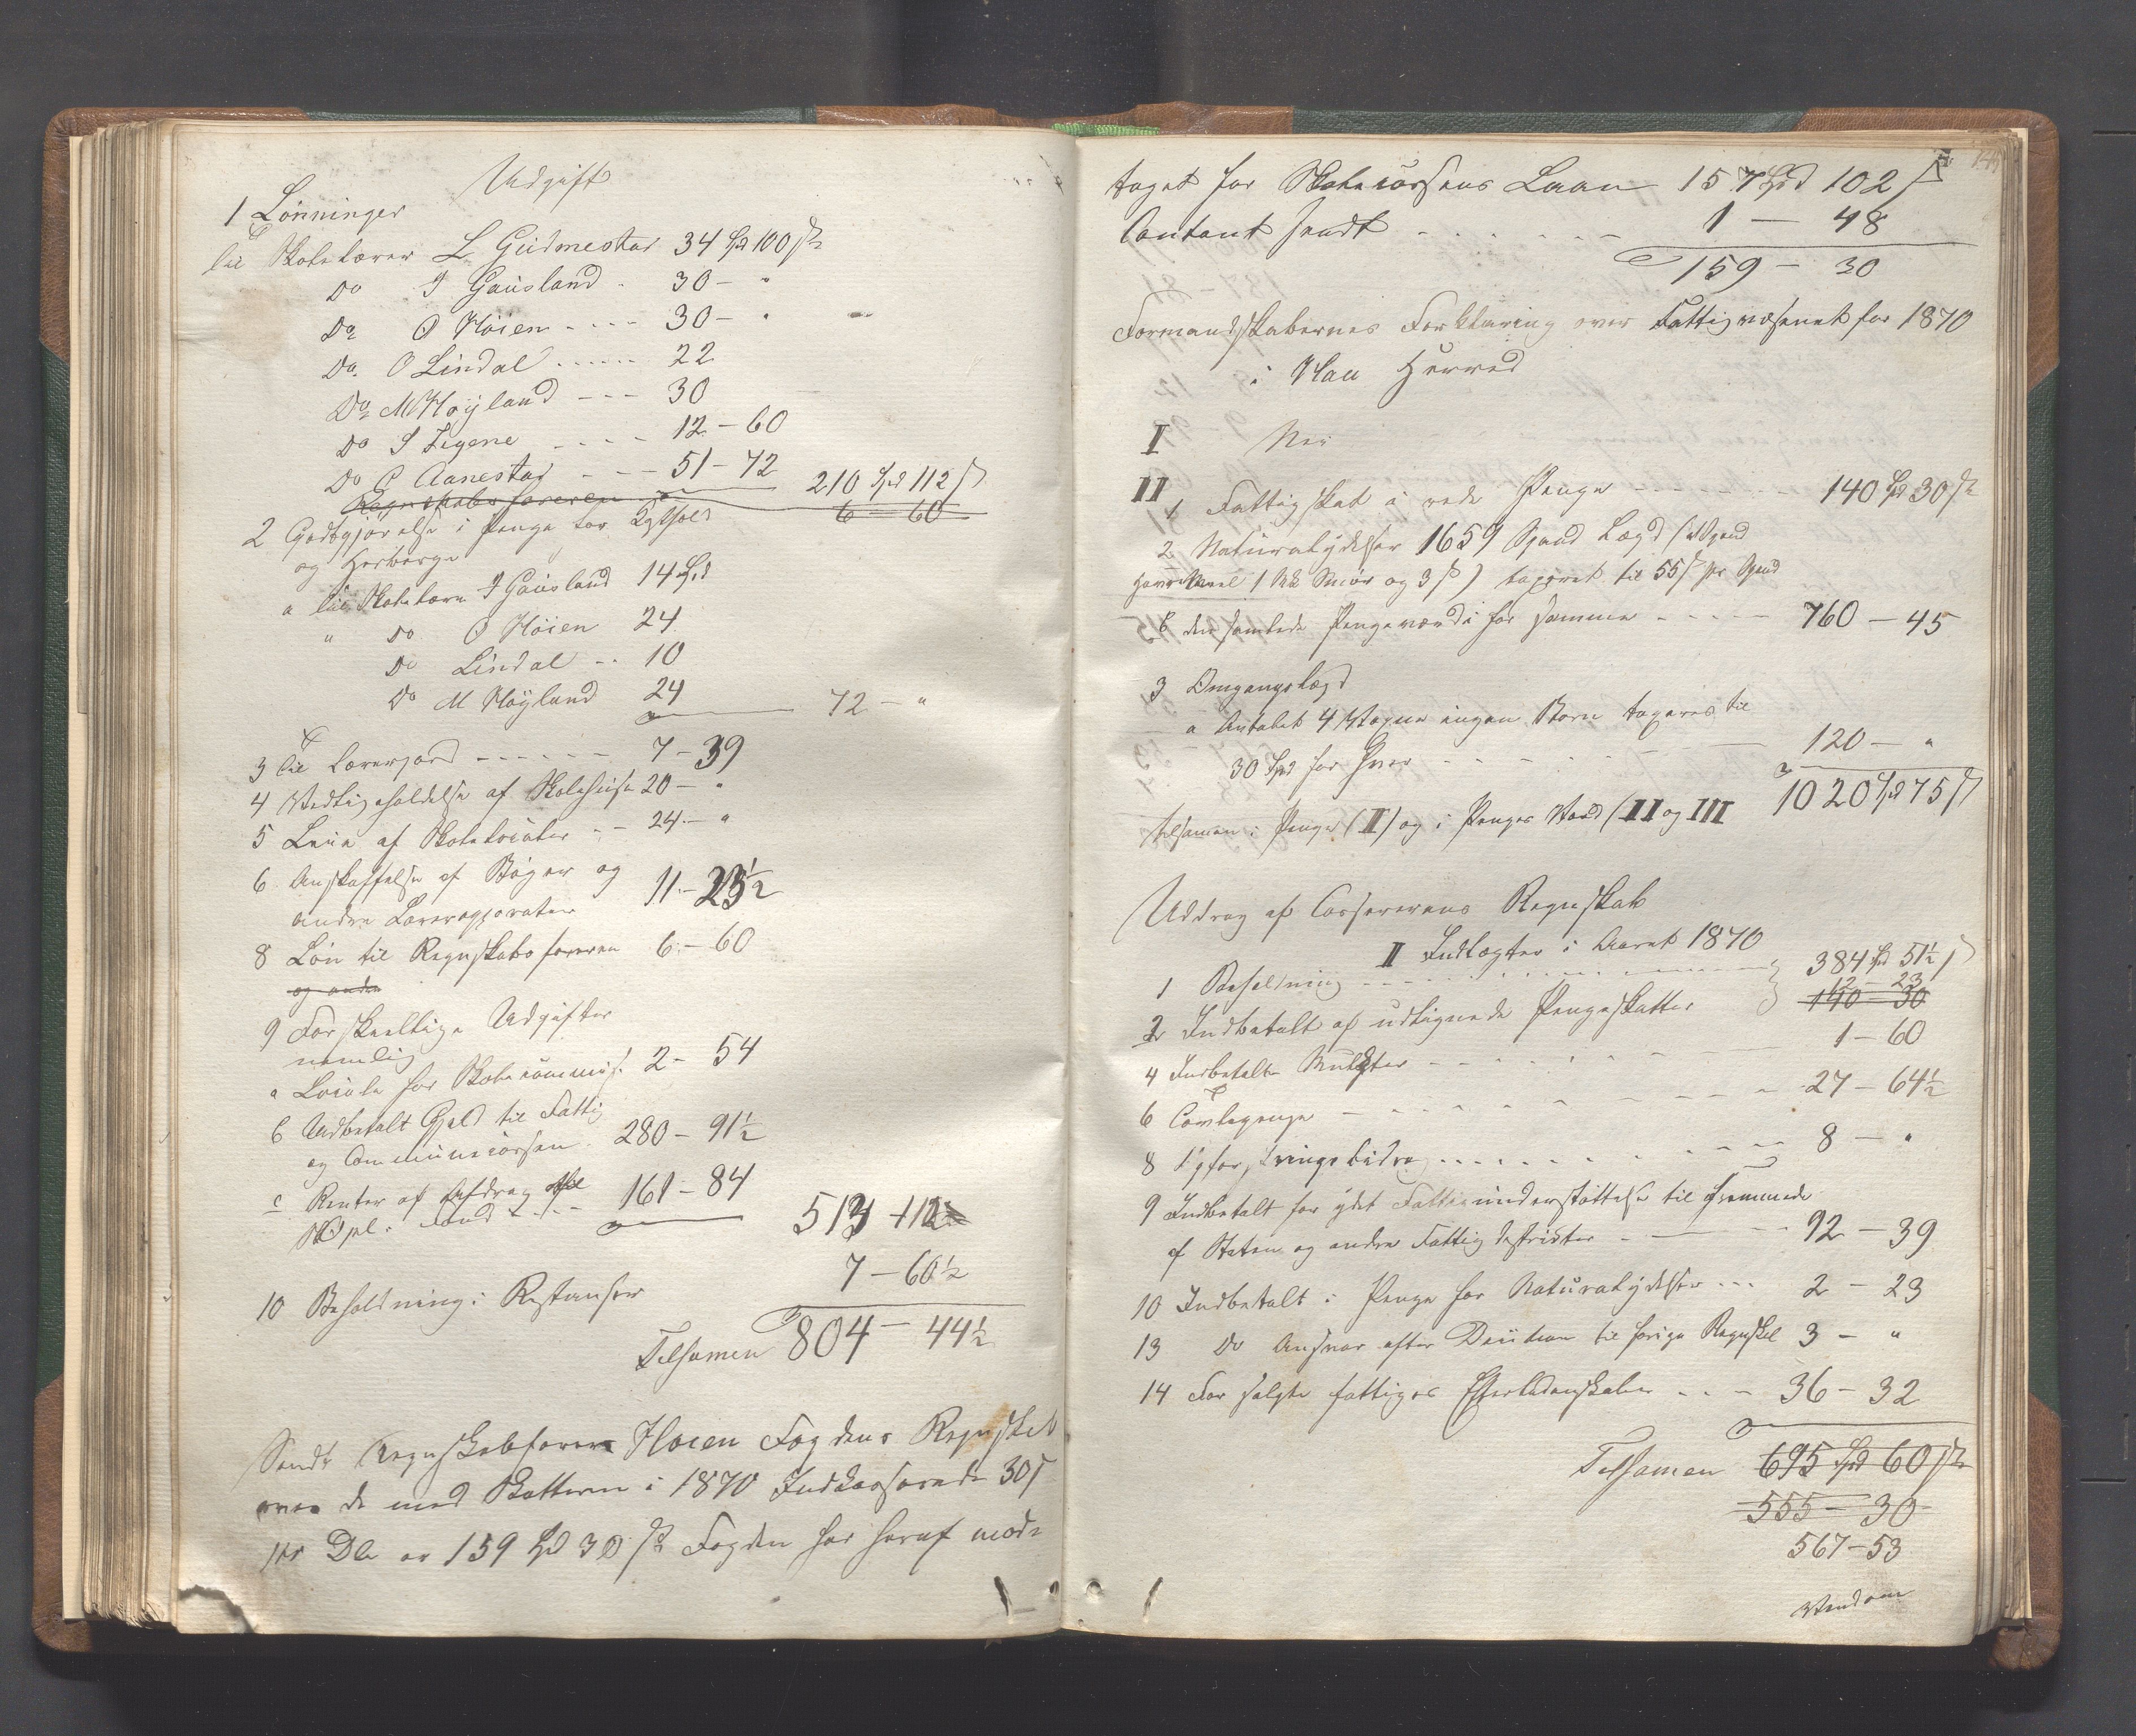 Udgift
1 Lønninger
til Skolelærer L Gudmestad 34 Spd 100 ß
Do I Gausland 30 – "
Do O Höien 30 – "
Do O Lindal 22
Do M Høyland 30
Do S Tegene 12 – 60
Do P Aanestad 51 – 72 210 Spd 112 ß
Regnskabsføreren 6 – 60
2 Godtgjørelse i Penge for Kosthold
og Herberge
a til Skolelærer I Gausland 14 Spd
" Do O Höien 24
Do Lindal 10
Do M Høyland 24 72 – "
3 Til Lærerjord 7 – 39
4 Vedligeholdelse af Skolehuse 20 – "
5 Leie af Skolelocaler 24 – "
6 Anskaffelse af Bøger og
andre Læreapparater 11 – 23½
8 Løn til Regnskabsføreren 6 – 60
og andre
9 Forskjellige Udgifter
nemlig
a Locale for Skolecommis: 2 – 54
b Udbetalt Gjeld til Fattig
og Communecassen 280 – 91½
c Renter af Afdrag til
Opl: Fond 161 – 84 513 – 112
10 Beholdning i Restanser 7 – 60½
Tilsamen 804 – 44½
Sendt Regnskabsfører Høien Fogdens Regnskab
over de med Skatterne i 1870 Indkasserede 30 ß
pr Dlr er 159 Spd 30 ß Fogden har heraf mod-
taget for Skolecassens Laan 157 Spd 102 ß
Contant sendt 1 – 48
159 – 30
Formandskabernes Forklaring over Fattigvæsenet for 1870
i Haa Herred
I Nei
II 1 Fattigskat i rede Penge 140 Spd 30 ß
2 Naturalydelser 1659 Spand Lægd (1 Spand
Havremeel 1 Mk Smør og 3 ß) taxeret til 55 ß pr Spand
b den samlede Pengeværdi for samme 760 – 45
3 Omgangslægd
a Antalet 4 Voxne ingen Børn taxeres til
30 Spd for hver 120 – "
tilsamen i Penge (II) og i Penges Værd (II og III 1020 Spd 75 ß
Uddrag af Cassererens Regnskab
II Indtægter i Aaret 1870
1 Beholdning 384 Spd 51½ ß
12 – 23
2 Indbetalt af udlignede Pengeskatter 140 – 30
4 Indbetalte Mulkter 1 – 60
6 Contogenge 27 – 64½
8 Opfostringsbidrag 8 – "
9 Indbetalt for ydet Fattigunderstøttelse til fremmede
af Staten og andre Fattigdistricter 92 – 39
10 Indbetalt i Penge for Naturalydelser 2 – 23
13 Do Ansvar efter Decision til forige Regnskab 3 – "
14 For solgte fattiges Efterladenskaber 36 – 32
Tilsamen 695 Spd 60 ß
555 – 30
567 – 53
Vend om